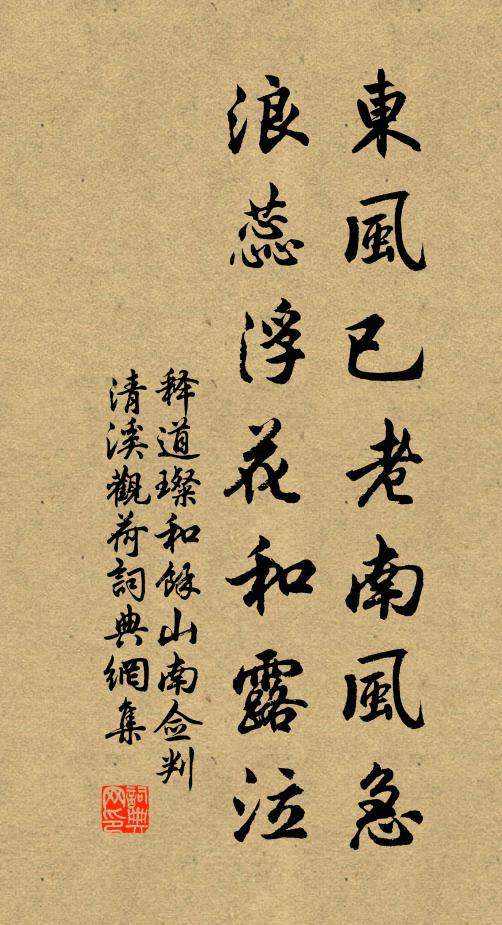 東風已老南風急
浪蕊浮花和露泣
释道璨和餘山南僉判
清溪觀荷詞典網集
詞典
网印